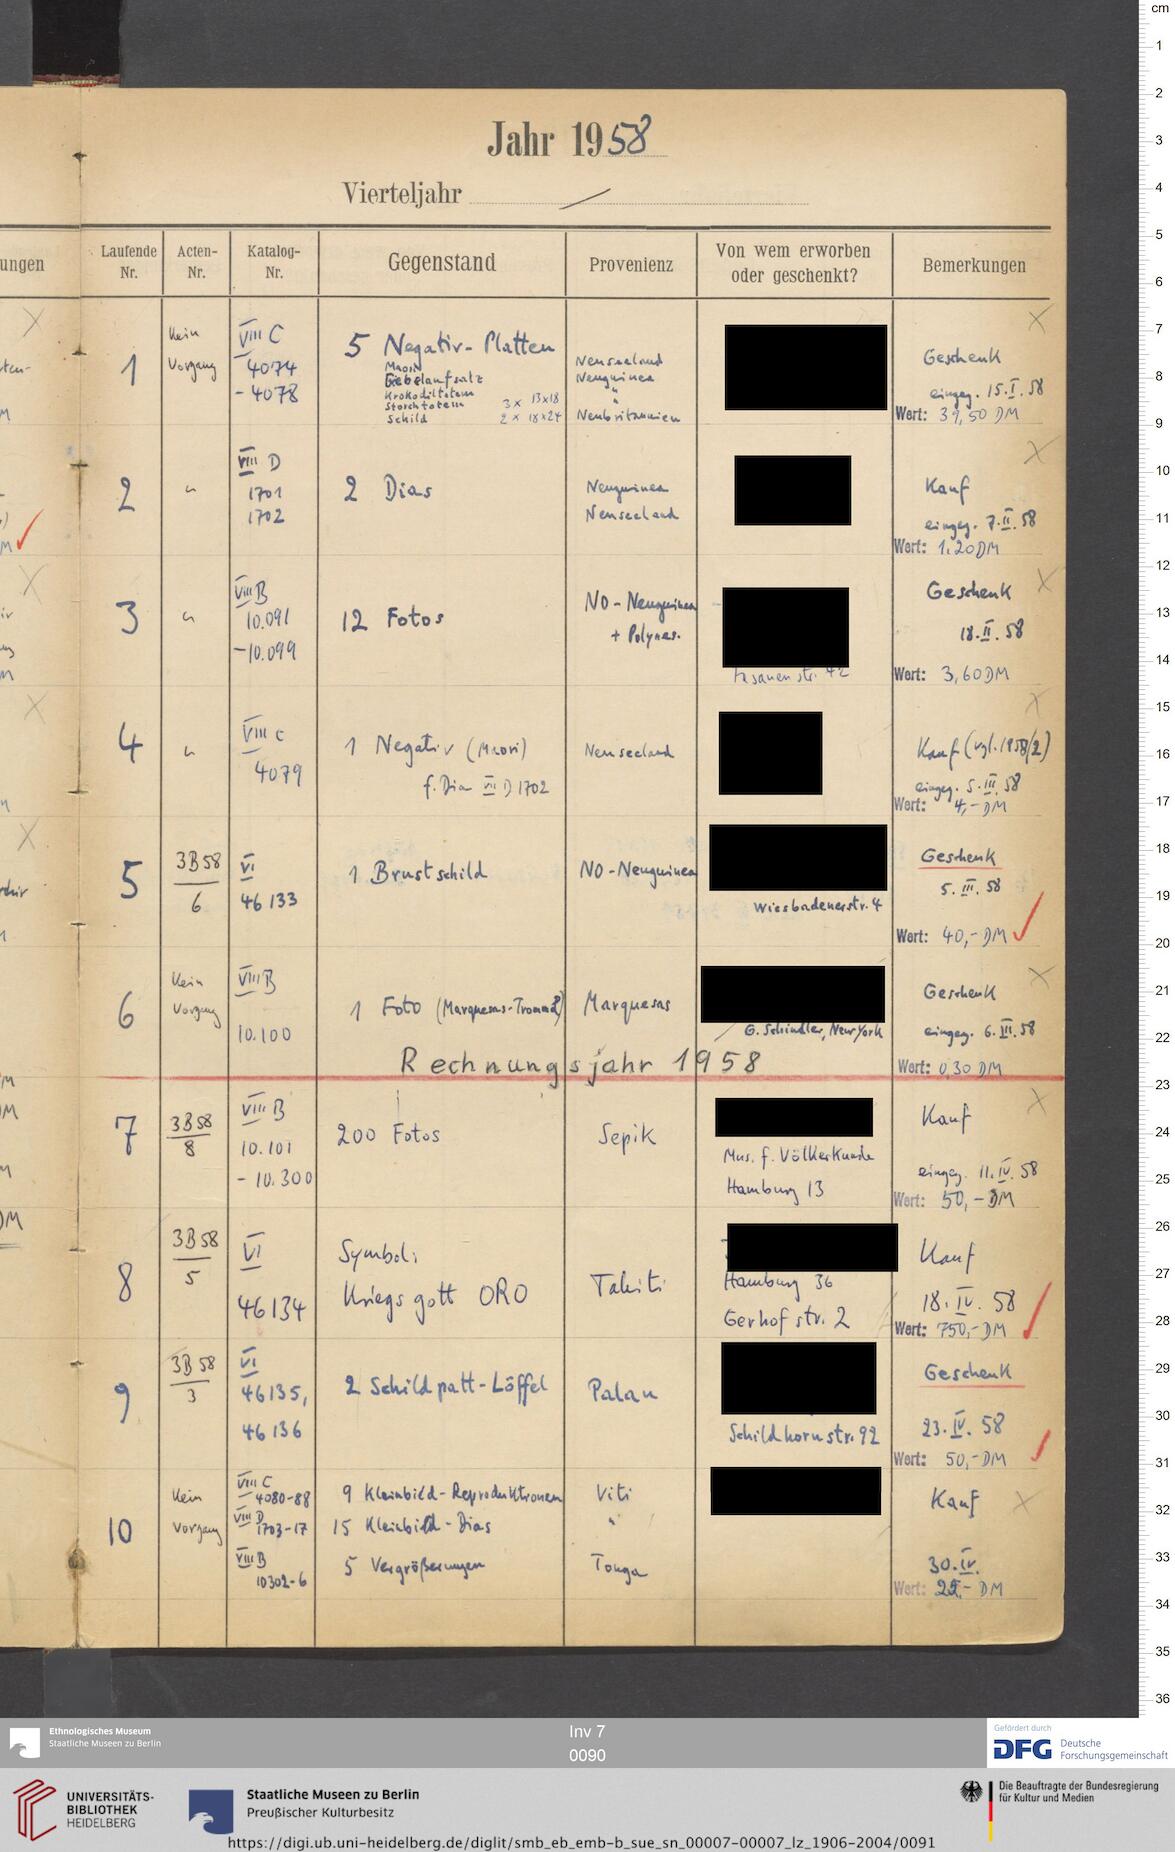 Jahr 1958
Vierteljahr
ungen
Laufende Nr.
Acten-Nr.
Katalog-Nr.
Gegenstand
Provenienz
Von wem erworben oder geschenkt?
Bemerkungen
1
Kein Vorgang
VIII C
4074
- 4078
5 Negativ-Platten
Maori
Giebelaufsatz
Krokodiltotem
Storchtotem 3 x 13x18
Schild 2 x 18x24
Neuseeland
Neuguinea
"
"
Neubritannien
Geschenk
eingeg. 15.I.58
Wert: 39,50 DM
2
"
VIII D
1701
1702
2 Dias
Neuguinea
Neuseeland
Kauf
eingeg. 7.II.58
Wert: 1.20 DM
3
"
VIII B
10.091
-10.099
12 Fotos
NO-Neuguinea
+ Polynes.
Fasanenstr. 42
Geschenk
18.II.58
Wert: 3,60 DM
4
"
VIII C
4079
1 Negativ (Maori)
f. Dia VIII D 1702
Neuseeland
Kauf (vgl. 1958/2)
eingeg. 5.III.58
Wert: 4,- DM
5
3B58
6
VI
46 133
1 Brustschild
NO-Neuguinea
Wiesbadenerstr. 4
Geschenk
5.III.58
Wert: 40,- DM
6
Kein Vorgang
VIII B
10.100
1 Foto (Marquesas-Trommel)
Marquesas
G. Schindler, New York
Geschenk
eingeg. 6.III.58
Wert: 0,30 DM
Rechnungsjahr 1958
7
3B58
8
VIII B
10.101
- 10.300
200 Fotos
Sepik
Mus. f. Völkerkunde
Hamburg 13
Kauf
eingeg. 11.IV.58
Wert: 50,- DM
8
3B58
5
VI
46134
Symbol:
Kriegsgott ORO
Tahiti
Hamburg 36
Gerhofstr. 2
Kauf
18.IV.58
Wert: 750,- DM
9
3B58
3
VI
46135,
46136
2 Schildpatt-Löffel
Palau
Schildhornstr. 92
Geschenk
23.IV.58
Wert: 50,- DM
10
Kein Vorgang
VIII C
4080-88
VIII D
1703-17
VIII B
10302-6
9 Kleinbild-Reproduktionen
15 Kleinbild-Dias
5 Vergrößerungen
Viti
"
Tonga
Kauf
30.IV.
Wert: DM
cm
1
2
3
4
5
6
7
8
9
10
11
12
13
14
15
16
17
18
19
20
21
22
23
24
25
26
27
28
29
30
31
32
33
34
35
36
Ethnologisches Museum
Staatliche Museen zu Berlin
Inv 7
0090
Gefördert durch
DFG Deutsche Forschungsgemeinschaft
UNIVERSITÄTS-
BIBLIOTHEK
HEIDELBERG
Staatliche Museen zu Berlin
Preußischer Kulturbesitz
Die Beauftragte der Bundesregierung
für Kultur und Medien
https://digi.ub.uni-heidelberg.de/diglit/smb_eb_emb-b_sue_sn_00007-00007_lz_1906-2004/0091